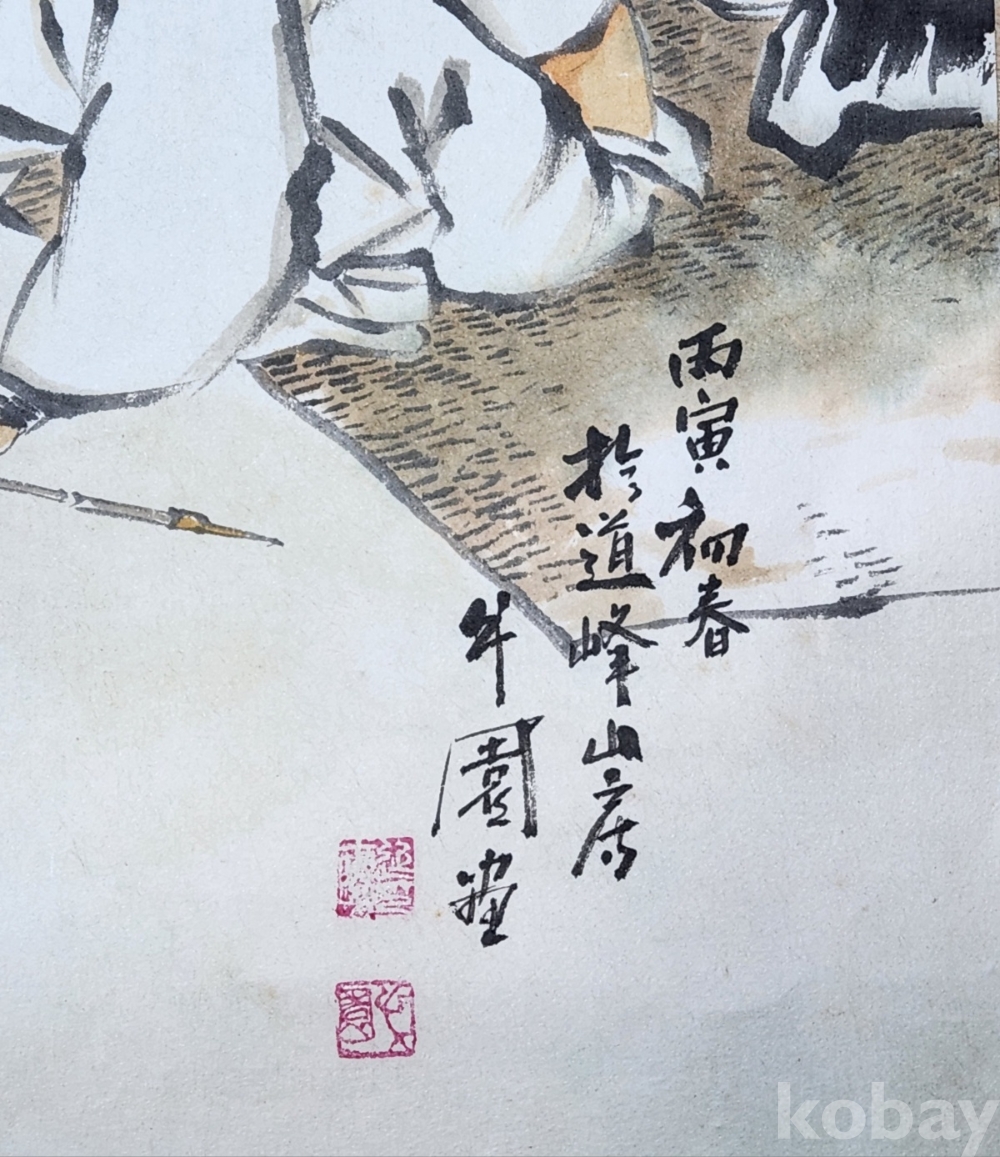 丙寅初春
於道峰山房
牛園畫
kobay